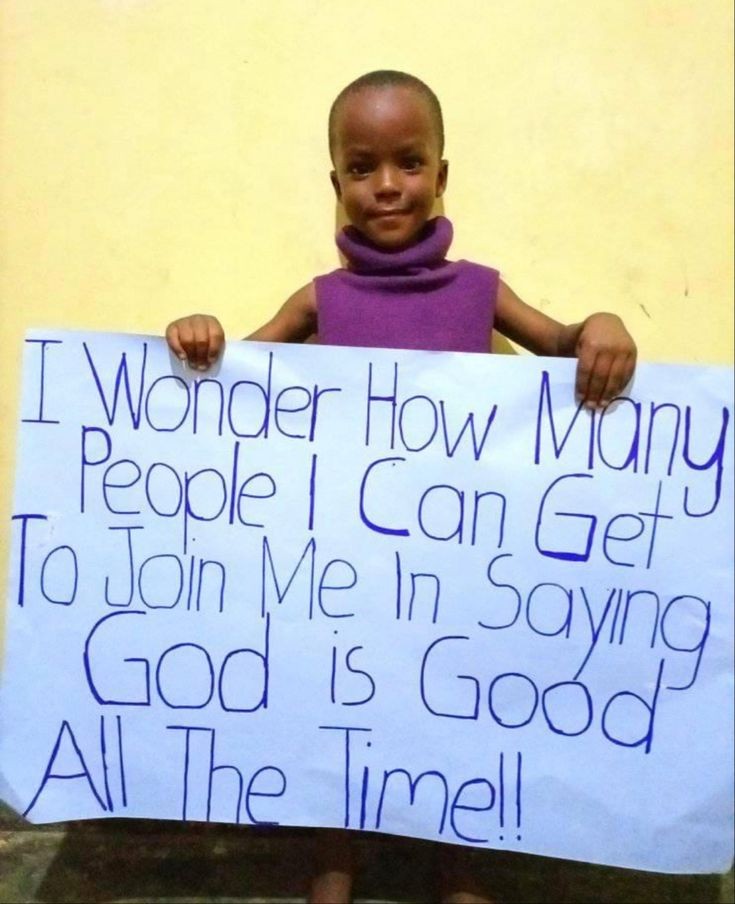 I Wonder How Many
People I Can Get
To Join Me In Saying
God is Good
All The Time!!